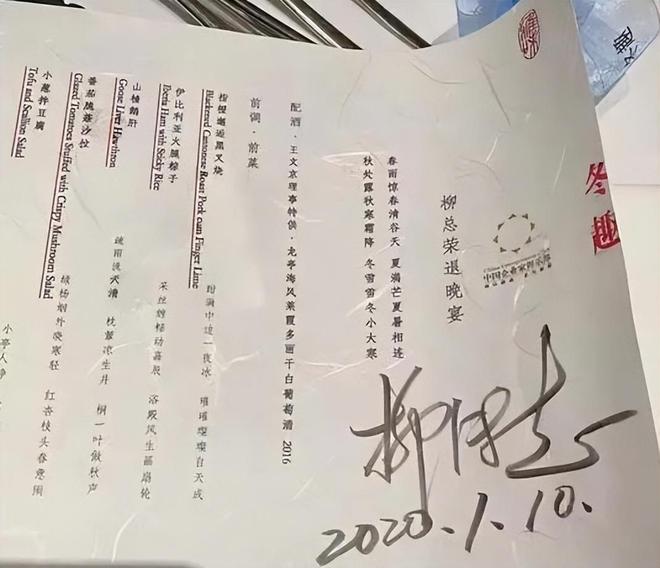 冬趣
中国企业家俱乐部
柳总荣退晚宴
春雨惊春清谷天 夏满芒夏暑相连
秋处露秋寒霜降 冬雪雪冬小大寒
配酒·王文京理事特供·龙亭海以莱霞多丽干白葡萄酒 2016
前调·前菜
指橙邂逅黑叉烧
Blackened Cantonese Roast Pork cum Finger Lime
甜满中边一夜冰 璀璀璨璨自天成
伊比利亚火腿粽子
Iberia Ham with Sticky Rice
采丝缠粽动嘉辰 浴殿风生画扇轮
山楂鹅肝
Goose Liver Hawthron
疏雨洗天清 枕簟凉生井 桐一叶做秋声
番茄脆菇沙拉
Glazed Tomatoes Stuffed with Crispy Mushroom Salad
绿杨烟外晓寒轻 红杏枝头春意闹
小葱拌豆腐
Tofu and Scallion Salad
小亭人静
柳传志
2020.1.10.